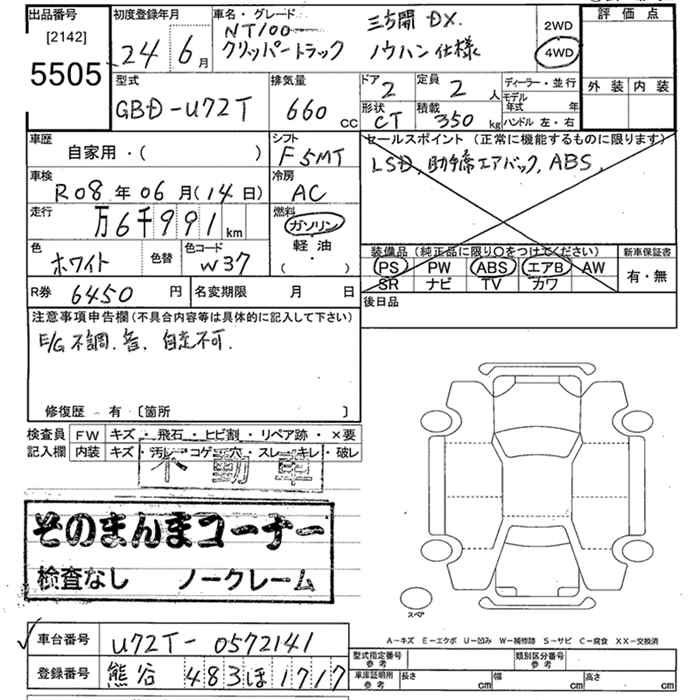 出品番号 初度登録年月 車名・グレード 評価点
[2142]
5505
24年6月
NT100 三方開 DX.
クリッパートラック ノウハン仕様
2WD
4WD
外装 内装
型式 排気量 ドア 定員 ディーラー・並行
GBD-U72T 660cc 2 2人 モデル年式 年
形状 積載 ハンドル 左・右
CT 350kg
車歴 シフト セールスポイント(正常に機能するものに限ります)
自家用・( ) F5MT LSD, 助手席エアバック, ABS,
車検 冷房
R08年06月(14日) AC
走行 燃料
万6千991km ガソリン
軽油
( ・ )
色 色替 色コード
ホワイト W37
装備品(純正品に限り○をつけてください) 新車保証書
PS PW ABS エアB AW 有・無
SR ナビ TV カワ
R券 6450円 名変期限 月 日 後日品
注意事項申告欄(不具合内容等は具体的に記入して下さい)
E/G不調.音. 自走不可.
修復歴 有 〔箇所 〕
検査員 FW キズ・飛石・ヒビ割・リペア跡・×要
記入欄 内装 キズ・汚レ・コゲ・穴・スレ・キレ・破レ
不動車
そのまんまコーナー
検査なし ノークレーム
スペア
A-キズ E-エクボ U-凹み W-補修跡 S-サビ C-腐食 XX-交換済
車台番号 U72T-0572141 型式指定番号 参考 類別区分番号 参考
登録番号 熊谷 483ほ1717 車庫証明所 参考 長さ cm 幅 cm 高さ cm